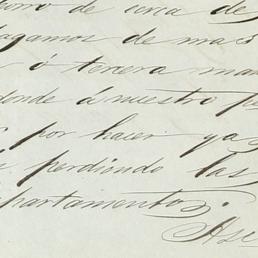 orro de cerca de
agamos de mas
ó tercera man
onde á nuestro pe
por hacer ya
perdiendo las
partamentos.